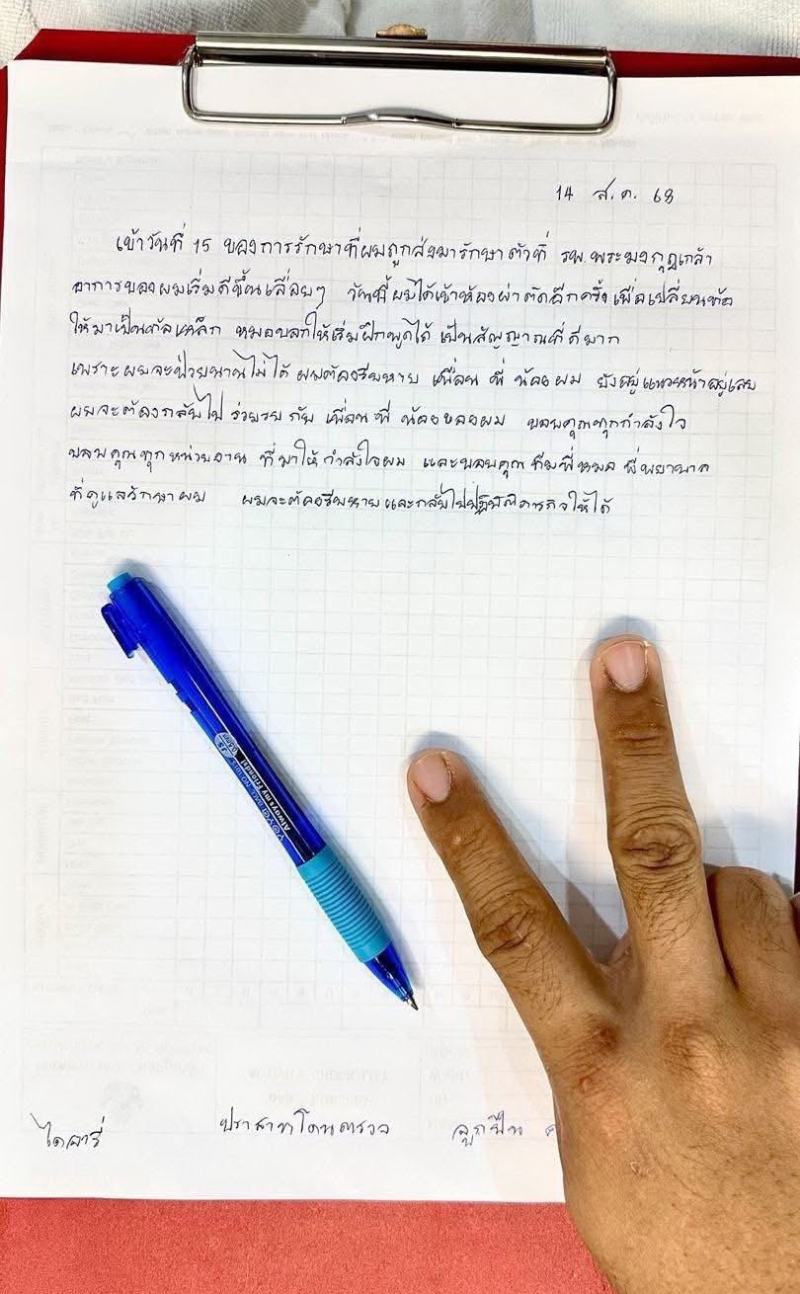 14 ส.ค. 68
เข้าวันที่ 15 ของการรักษาที่ผมถูกส่งมารักษาตัวที่ รพ.พระมงกุฎเกล้า
อาการของผมเริ่มดีขึ้นเลื่อยๆ วันนี้ผมได้เข้าห้องผ่าตัดอีกครั้ง เพื่อเปลี่ยนท่อ
ให้มาเป็นท่อเหล็ก หมอบอกให้เริ่มฝึกพูดได้ เป็นสัญญาณที่ดีมาก
เพราะผมจะป่วยนานไม่ได้ ผมต้องรีบหาย เพื่อน พี่ น้อง ผม ยังอยู่แนวหน้าอยู่เลย
ผมจะต้องกลับไป ร่วมรบ กับ เพื่อน พี่ น้องของผม ขอบคุณทุกกำลังใจ
ขอบคุณทุกหน่วยงาน ที่มาให้กำลังใจผม และขอบคุณ ทีมพี่หมอ พี่พยาบาล
ที่ดูแลรักษาผม ผมจะต้องรีบหายและกลับไปปฏิบัติภารกิจให้ได้
YOYA
Always my Friends!
ไดอารี่ ปราสาทโดนตวล ลูกปืน